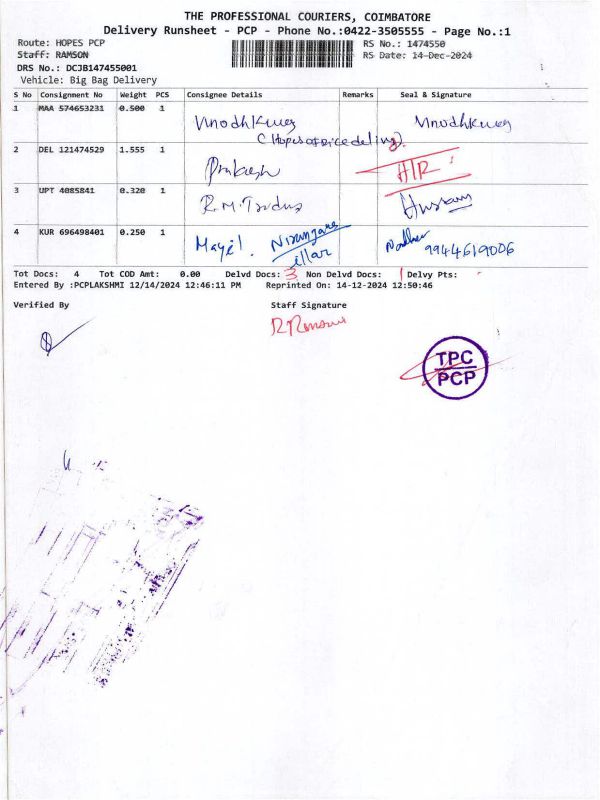 THE PROFESSIONAL COURIERS, COIMBATORE
Delivery Runsheet - PCP - Phone No.:0422-3505555 - Page No.:1
Route: HOPES PCP
RS No.: 1474550
Staff: RAMSON
RS Date: 14-Dec-2024
DRS No.: DCJB147455001
Vehicle: Big Bag Delivery
S No Consignment No Weight PCS Consignee Details Remarks Seal & Signature
1 MAA 574653231 0.500 1 Vinodhkumar Vinodhkumar
(Hopes office delivery)
2 DEL 121474529 1.555 1 Prakash
3 UPT 4085841 0.320 1 R.M.
4 KUR 696498401 0.250 1 9944619006
Tot Docs: 4 Tot COD Amt: 0.00 Delvd Docs: 3 Non Delvd Docs: 1 Delvy Pts:
Entered By :PCPLAKSHMI 12/14/2024 12:46:11 PM Reprinted On: 14-12-2024 12:50:46
Verified By Staff Signature
TPC
PCP